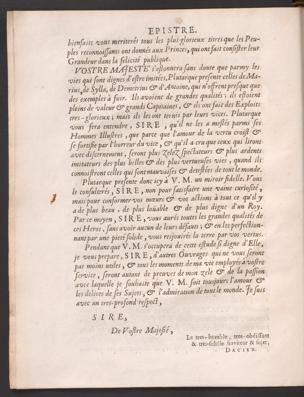 EPISTRE.
bienfaits vous meriterés tous les plus glorieux titres que les Peu-
ples reconnoissans ont donnés aux Princes, qui ont fait consister leur
Grandeur dans la felicité publique.
VOSTRE MAJESTÉ s'estonnera sans doute que parmy les
vies qui sont dignes d'estre imitées, Plutarque presente celles de Ma-
rius, de Sylla, de Demetrius & d'Antoine, qui n'offrent presque que
des exemples à fuir. Ils avoient de grandes qualités: ils estoient
pleins de valeur & grands Capitaines, & ils ont fait des Exploits
tres-glorieux; mais ils les ont ternis par leurs vices. Plutarque
vous fera entendre, SIRE, qu'il ne les a meslés parmi ses
Hommes Illustres, que parce que l'amour de la vertu croist &
se fortifie par l'horreur du vice, & qu'il a cru que ceux qui liront
avec discernement, seront plus zelez spectateurs & plus ardents
imitateurs des plus belles & des plus vertueuses vies, quand ils
connoistront celles qui sont mauvaises & detestées de tout le monde.
Plutarque presente donc icy à V. M. un miroir fidelle. Vous
le consulterés, SIRE, non pour satisfaire une vaine curiosité,
mais pour conformer vos mœurs & vos actions à tout ce qu'il y
a de plus beau, de plus loüable & de plus digne d'un Roy.
Par ce moyen, SIRE, vous aurés toutes les grandes qualités de
ces Heros, sans avoir aucun de leurs défauts; & en les perfection-
nant par une pieté solide, vous resjouirés la terre par vos vertus.
Pendant que V. M. s'occupera de cette estude si digne d'Elle,
je vous prepare, SIRE, d'autres Ouvrages qui ne vous seront
pas moins utiles, & tous les moments de ma vie employés à vostre
service, seront autant de preuves de mon zele & de la passion
avec laquelle je souhaite que V. M. soit toujours l'amour &
les delices de ses Sujets, & l'admiration de tout le monde. Je suis
avec un tres-profond respect,
SIRE,
De Vostre Majesté,
Le tres-humble, tres-obéissant
& tres-fidelle serviteur & sujet,
DACIER.